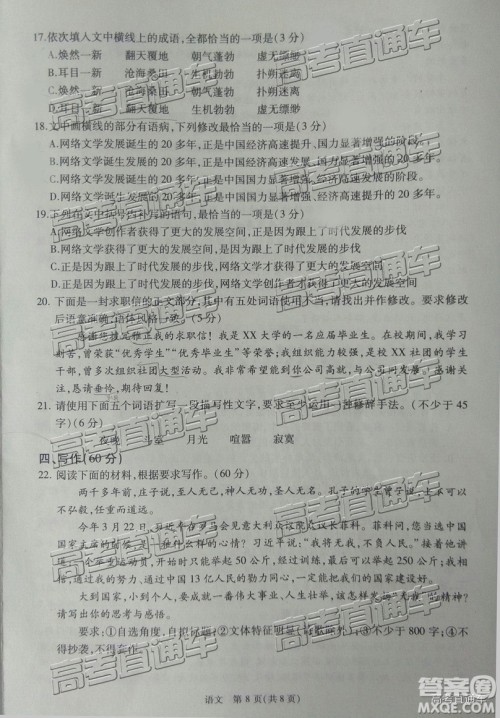 17.依次填入文中横线上的成语,全都恰当的一项是(3 分)
A.焕然一新 翻天覆地 朝气蓬勃 虚无缥缈
B.耳目一新 沧海桑田 生机勃勃 扑朔迷离
C.焕然一新 翻天覆地 朝气蓬勃 扑朔迷离
D.耳目一新 翻天覆地 生机勃勃 虚无缥缈
18.文中画横线的部分有语病,下列修改最恰当的一项是(3 分)
A.网络文学发展诞生的 20 多年,正是中国经济高速提升、国力显著增强的阶段。
B.网络文学发展诞生的 20 多年,正是中国国力显著增强、经济高速发展的阶段。
C.网络文学诞生发展的 20 多年,正是中国国力显著增强、经济高速发展的阶段。
D.网络文学诞生发展的 20 多年,正是中国经济高速提升、国力显著增强的 20 多年。
19.下列在文中括号内补写的语句,最恰当的一项是(3 分)
A.网络文学创作者获得了更大的发展空间,正是因为跟上了时代发展的步伐
B.网络文学获得了更大的发展空间,也是因为跟上了时代发展的步伐
C.正是因为跟上了时代发展的步伐,网络文学获得了更大的发展空间
D.正是因为跟上了时代发展的步伐,网络文学创作者获得了更大的发展空间
20.下面是一封求职信的正文部分,其中有五处词语使用不当,请找出并作修改。要求修改
后语意准确,语体风格一致。(5 分)
感谢您拨冗雅正我的求职信!我是 XX 大学的一名应届毕业生。在校期间,我学习
刻苦,曾荣获“优秀学生”“优秀毕业生”等荣誉;我组织能力强,曾担任校 XX 社团的学生
干部,多次组织社团大型活动。我非常希望能够到您的公司就职,与公司
恳请垂怜,期待回复!
21.请使用下面五个词语扩写一段描写性文字,要求至少运用一种修辞手法。(不少于 45
字)(6 分)
夜晚 斗室 月光 喧嚣 寂寞
四、写作(60 分)
22.阅读下面的材料,根据要求写作。(60 分)
两千多年前,庄子有云,至人无己,神人无功,圣人无名。孔子的学生曾子说,士不可以
不弘毅,任重而道远。
今年 3 月 22 日,习近平主席在罗马会见意大利众议院议长菲科。菲科问,您当选中国
国家主席的时候,是一种什么样的心情?习近平说,“我将无我,不负人民。”接着,他谈到
举重运动员,最开始只能举起 50 公斤,经过训练,最后可以举起 250 公斤。我相信可以通
过我的努力、通过中国 13 亿人民勠力同心,把我们的国家建设好。
大到国家,小到我们每一个人,要成就一番伟大事业,人生需要“无我”的精神?
请写出你的思考与感悟。
要求:①自选角度,自拟标题;②文体特征明显(诗歌除外);③不少于 800 字;④不得
抄袭,不得套作。
语文 第 8 页(共 8 页)
高考直通车
答案圈
MXQE.COM